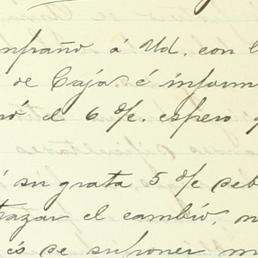 ompaño á Ud. con l
de Caja é inform
ó el 6 %. espero q
su grata 5 %. deb
trazar el cambio, n
és de suponer m